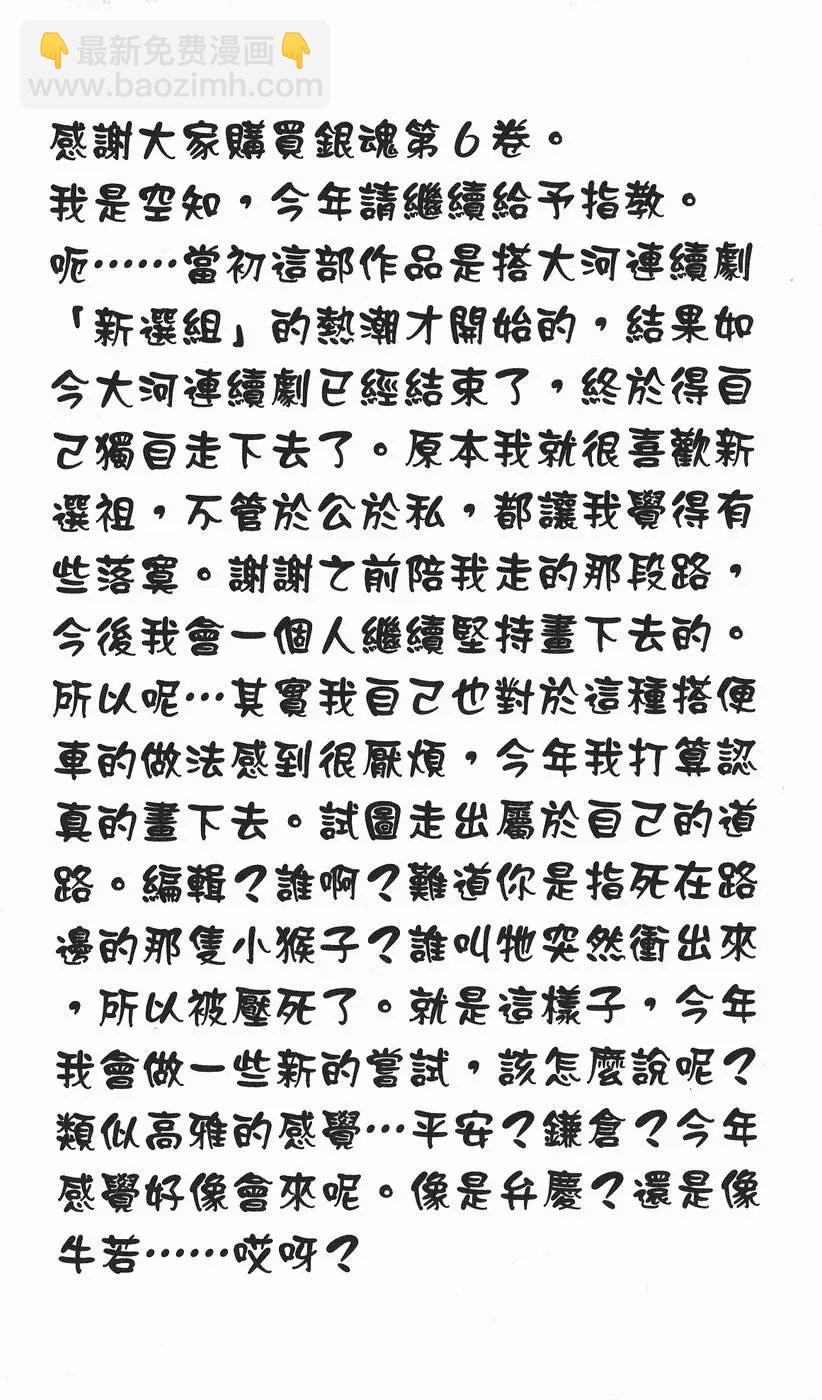 👇最新免费漫画👇
www.baozimh.com
感謝大家購買銀魂第6卷。
我是空知，今年請繼續給予指教。
呃……當初這部作品是搭大河連續劇
「新選組」的熱潮才開始的，結果如
今大河連續劇已經結束了，終於得自
己獨自走下去了。原本我就很喜歡新
選祖，不管於公於私，都讓我覺得有
些落寞。謝謝之前陪我走的那段路，
今後我會一個人繼續堅持畫下去的。
所以呢…其實我自己也對於這種搭便
車的做法感到很厭煩，今年我打算認
真的畫下去。試圖走出屬於自己的道
路。編輯？誰啊？難道你是指死在路
邊的那隻小猴子？誰叫牠突然衝出來
，所以被壓死了。就是這樣子，今年
我會做一些新的嘗試，該怎麼說呢？
類似高雅的感覺…平安？鎌倉？今年
感覺好像會來呢。像是弁慶？還是像
牛若……哎呀？